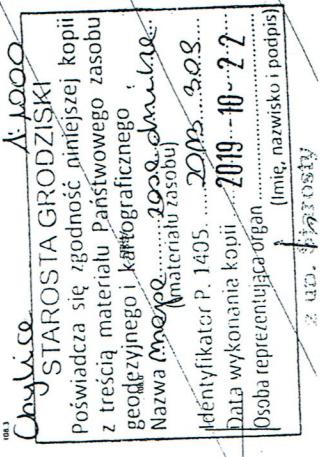 108.3
Chylice 1:1000
STAROSTA GRODZISKI
Poświadcza się zgodność niniejszej kopii
z treścią materiału Państwowego zasobu
geodezyjnego i kartograficznego
Nazwa mapa zasadnicza
(materiału zasobu)
Identyfikator P. 1405. 2013.303
Data wykonania kopii 2019 -10- 2 2
Osoba reprezentująca organ
(Imię, nazwisko i podpis)
z up. Starosty